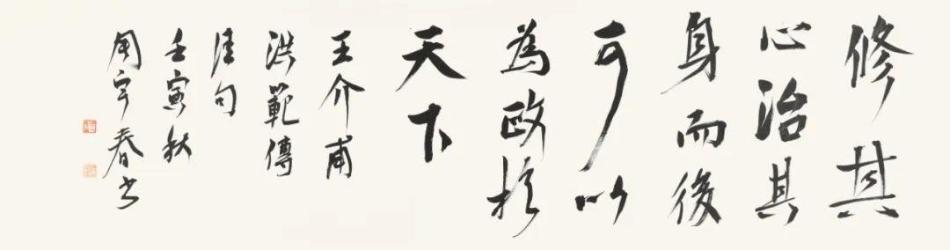 修其
心治其
身而後
可以
為政於
天下
王介甫
洪範傳
佳句
壬寅秋
周宇春書